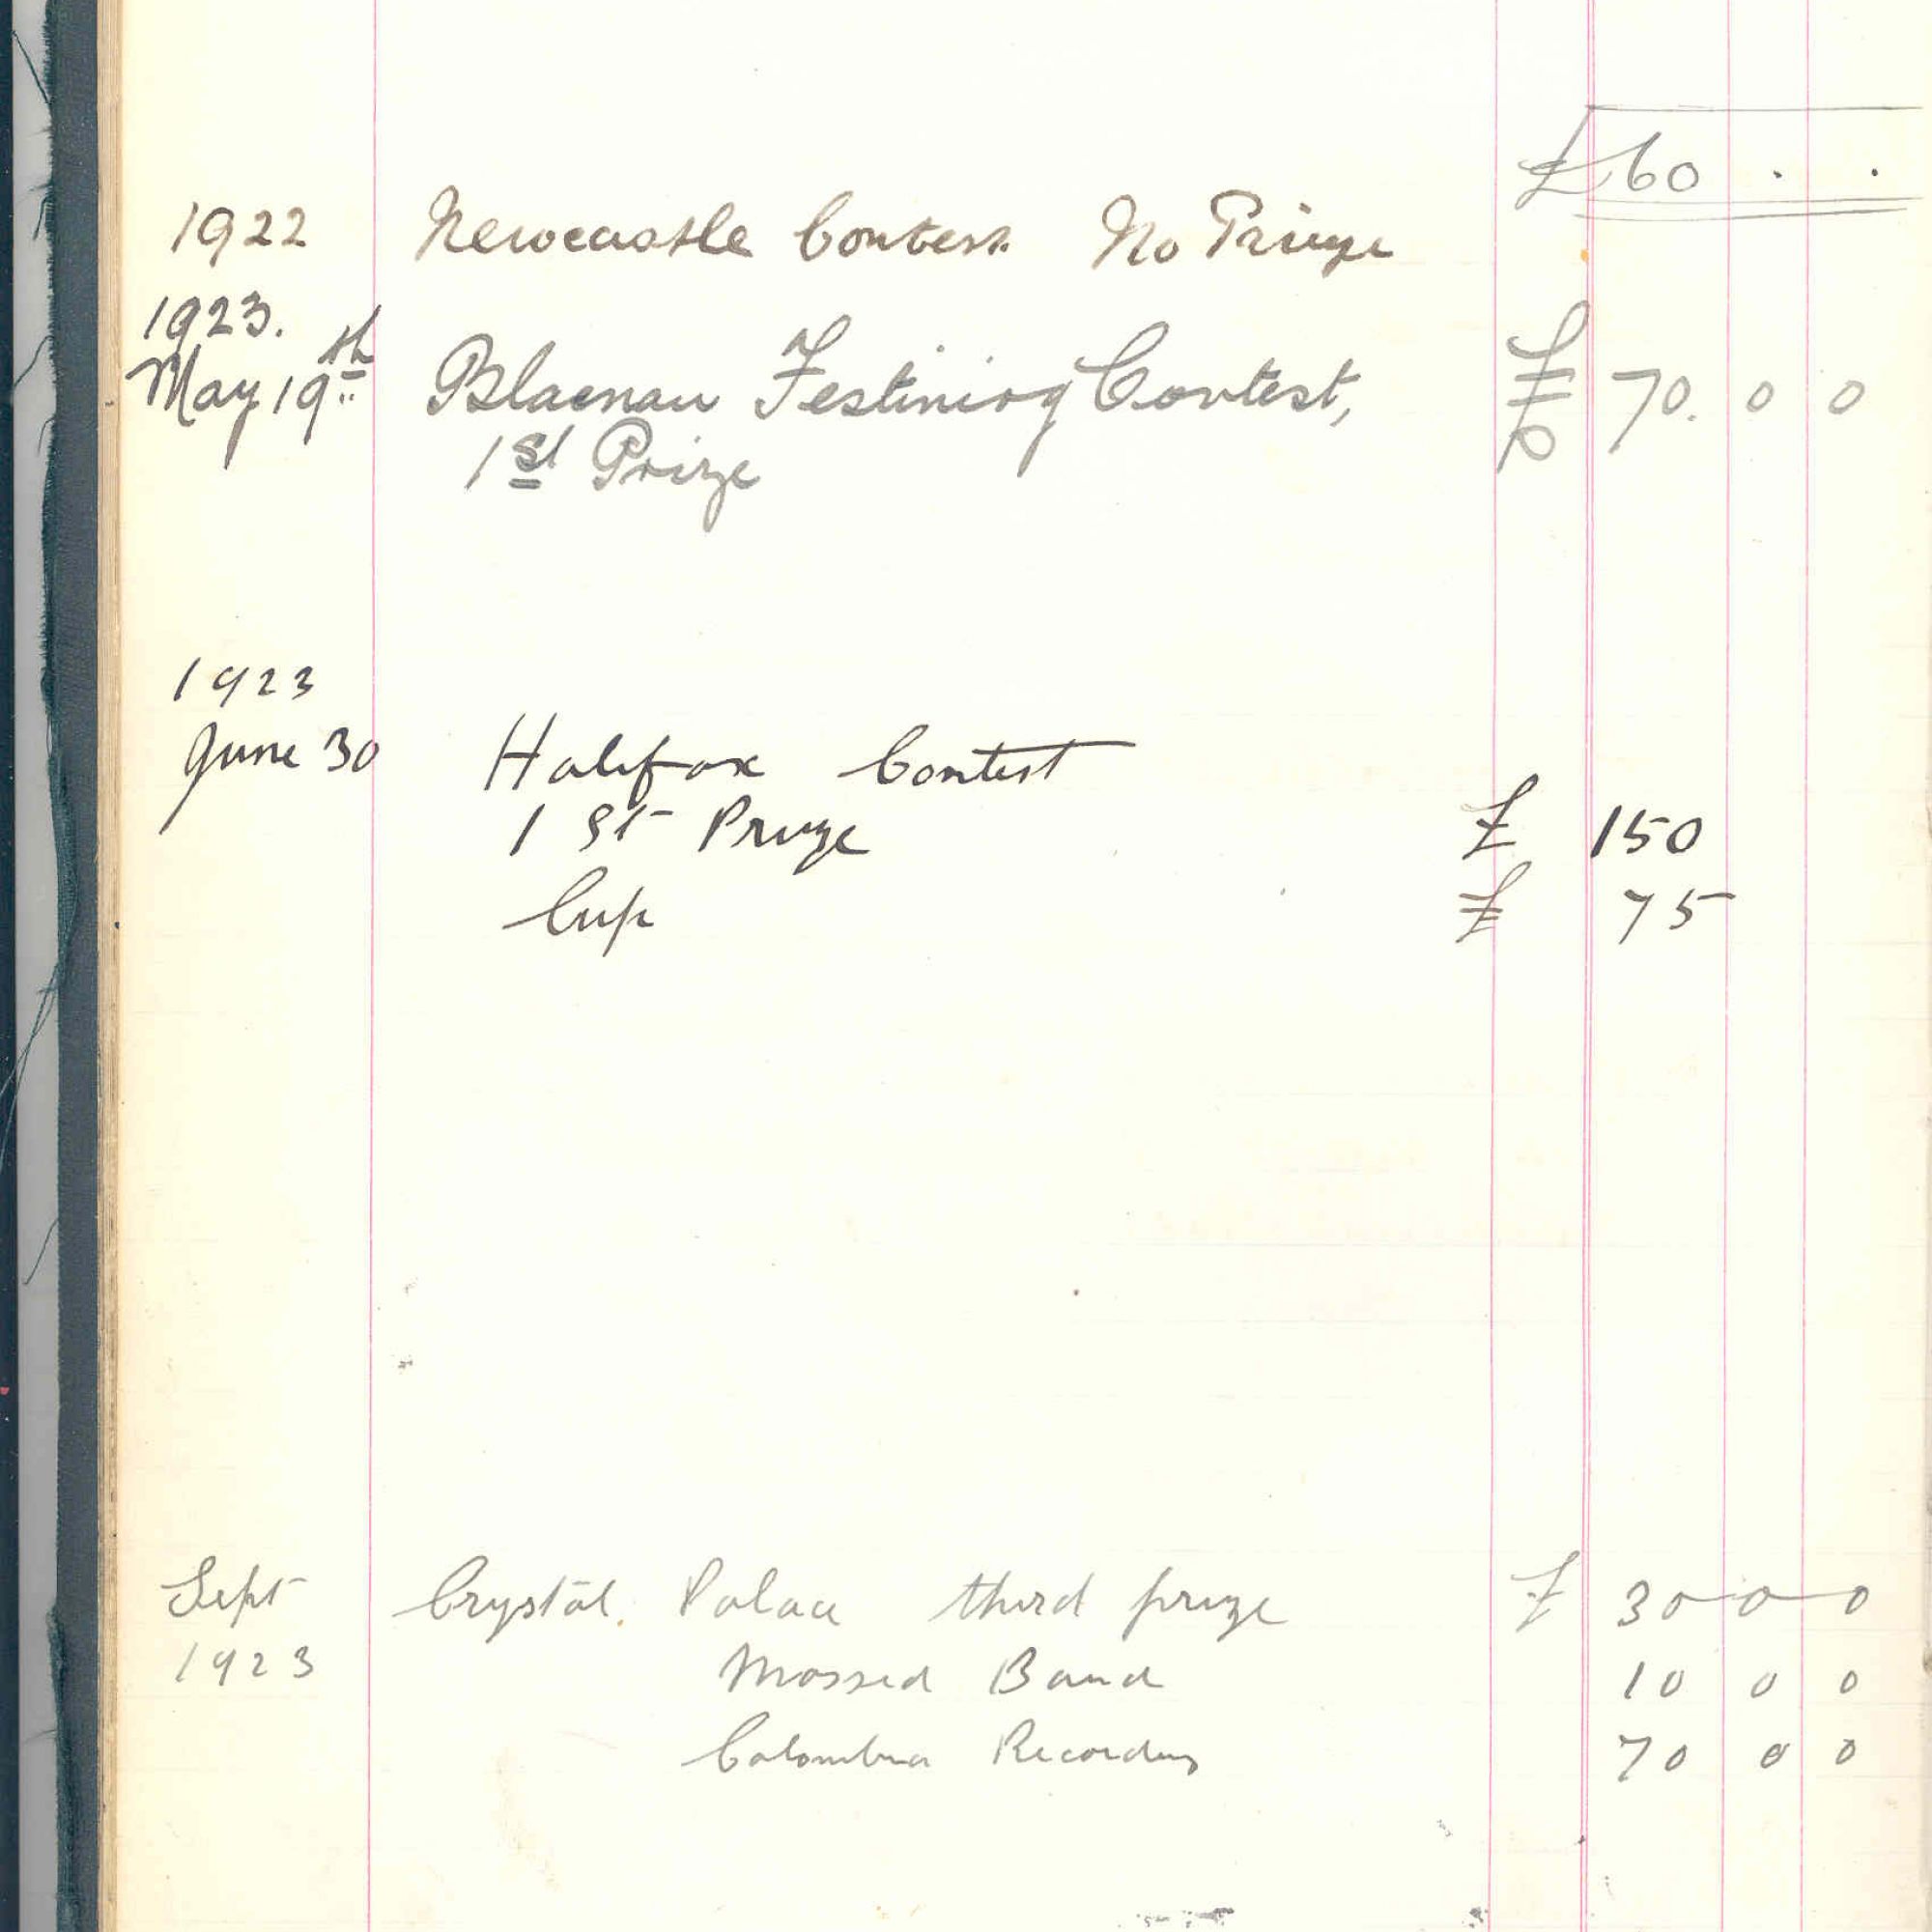 £60 . .
1922 Newcastle Contest No Prize
1923.
May 19th Blaenau Festiniog Contest, £ 70. 0 0
1st Prize
1923
June 30 Halifax Contest
1 St Prize £ 150
Cup £ 75
Sept Crystal Palace third prize £ 30 0 0
1923 Massed Band 10 0 0
Columbia Recording 70 0 0